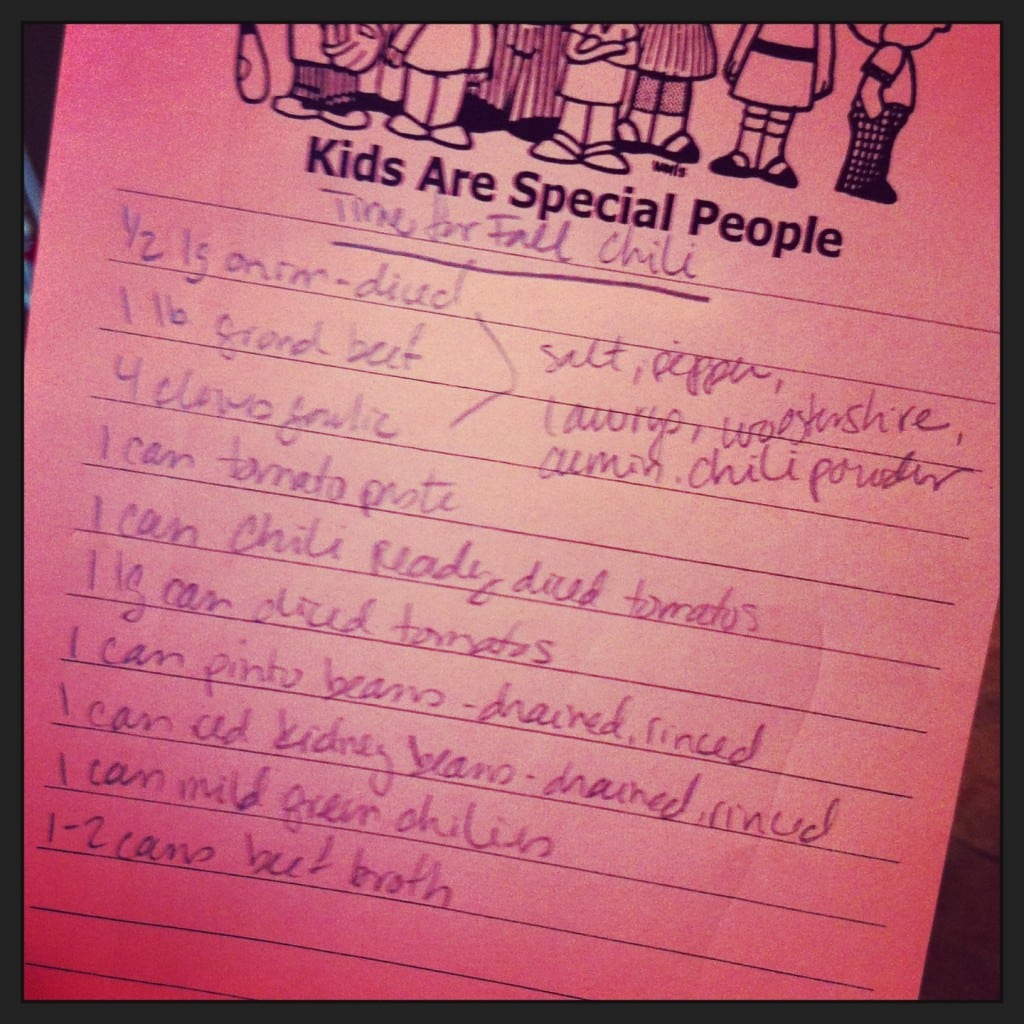 Kids Are Special People
Time for Fall Chili
1/2 lg onion - diced
1 lb ground beef
4 cloves garlic
salt, pepper,
lawrys, woostershire,
cumin, chili powder
1 can tomato paste
1 can chili ready diced tomatos
1 lg can diced tomatos
1 can pinto beans - drained, rinced
1 can red kidney beans - drained, rinced
1 can mild green chilies
1-2 cans beef broth